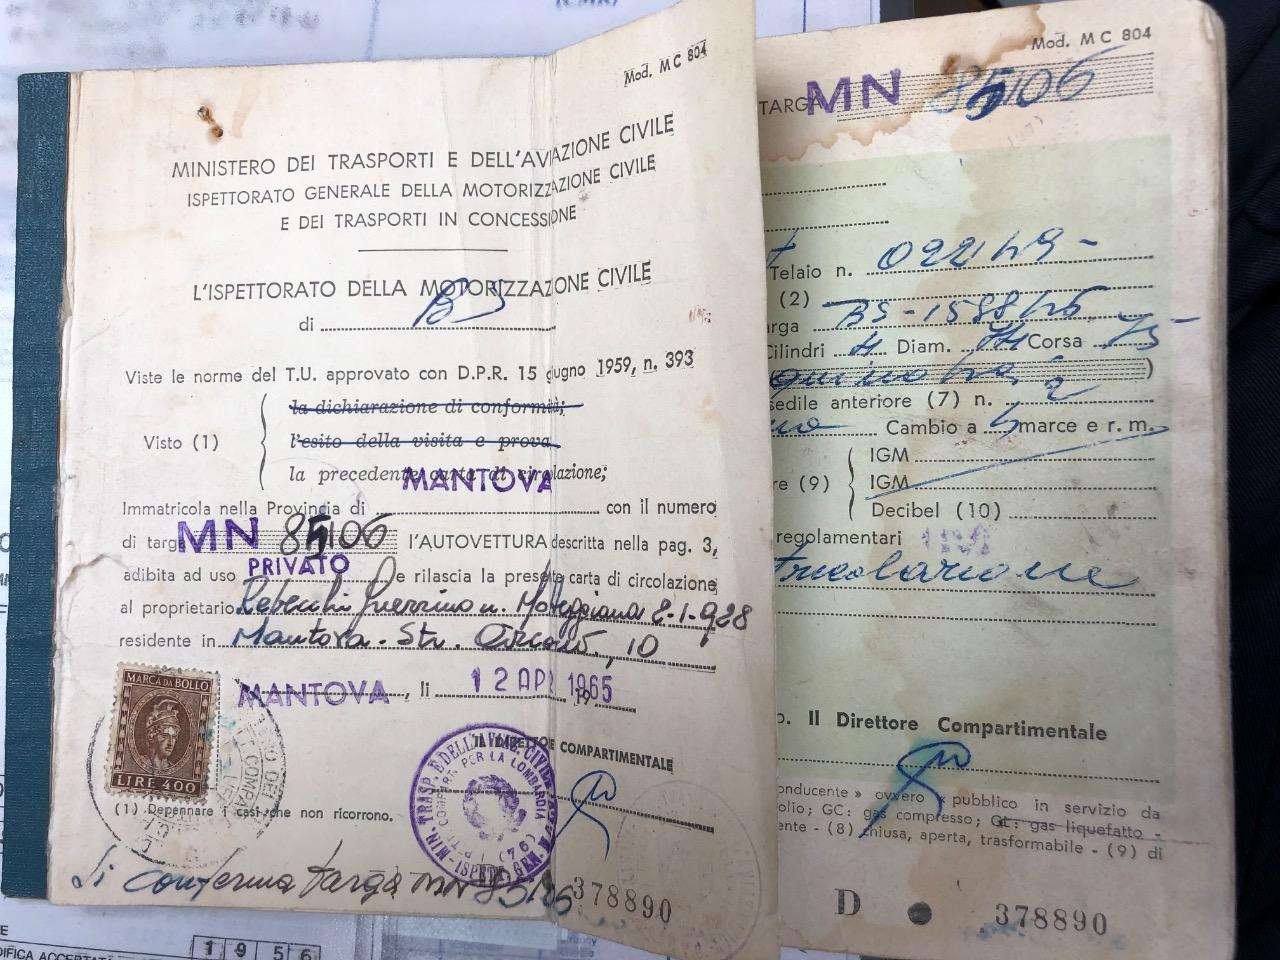 Mod. M C 804
MINISTERO DEI TRASPORTI E DELL'AVIAZIONE CIVILE
ISPETTORATO GENERALE DELLA MOTORIZZAZIONE CIVILE
E DEI TRASPORTI IN CONCESSIONE
L'ISPETTORATO DELLA MOTORIZZAZIONE CIVILE
di BS
Viste le norme del T.U. approvato con D.P.R. 15 giugno 1959, n. 393
la dichiarazione di conformità;
Visto (1) l'esito della visita e prova
la precedente carta di circolazione;
Immatricola nella Provincia di MANTOVA con il numero
di targa MN 85106 l'AUTOVETTURA descritta nella pag. 3,
adibita ad uso PRIVATO e rilascia la presente carta di circolazione
al proprietario Rebecchi Guerrino n. Motteggiana 8-1-928
residente in Mantova - Str. 10
MANTOVA, li 12 APR 1965
MARCA DA BOLLO
LIRE 400
IL DIRETTORE COMPARTIMENTALE
MIN. TRASP. E DELL'AVIAZ. CIVILE - ISPETT. GEN. M
COMPART. PER LA LOMBARDIA
(76)
(1) Depennare i casi che non ricorrono.
Si conferma targa MN 85106
378890
Mod. M C 804
TARGA MN 85106
Telaio n. 022149-
(2)
arga BS-158816
Cilindri 4 Diam. Corsa 75-
)
sedile anteriore (7) n. 2
Cambio a 4 marce e r. m.
IGM
re (9) IGM
Decibel (10)
regolamentari
circolazione
o. Il Direttore Compartimentale
onducente » ovvero « pubblico in servizio da
olio; GC: gas compresso; GL: gas liquefatto -
ente - (8) chiusa, aperta, trasformabile - (9) di
D 378890
1 9 5 6